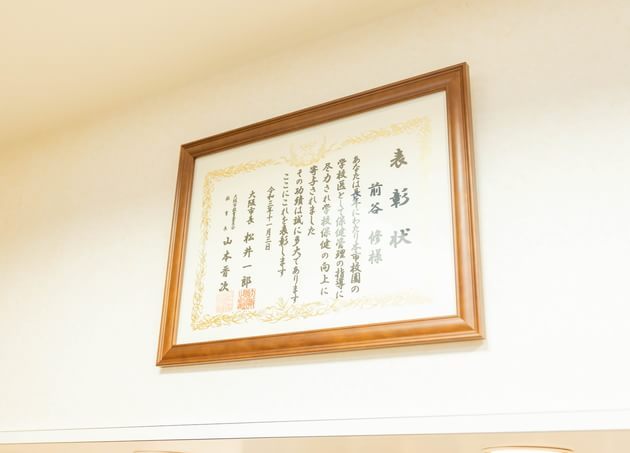 表彰状
前谷 修様
あなたは長年にわたり本市校園の
学校医として保健管理の指導に
尽力され学校保健の向上に
寄与されました
その功績は誠に多大であります
ここにこれを表彰します
令和三年十一月三日
大阪市長 松井一郎
大阪市教育委員会
教育長 山本晋次